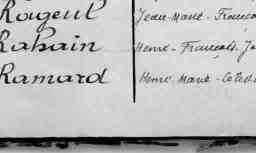 Rogeul Jean-Marie - Françoi
Rahain Henri - François. Je
Ramard Henri Marie - Célest